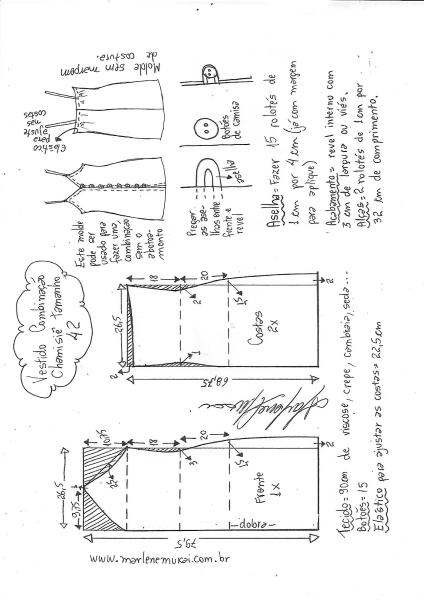 Vestido Combinação
Chamisiê Tamanho
42
Este molde
pode ser
usado para
fazer uma
combinação
sem o
abotoa-
mento
Elástico
para
ajuste
nas
costas
Molde sem margem
de costura.
Pregar
as ase-
lhas entre
frente e
revel
aselha
Botões
de camisa
Aselha = Fazer 15 rolotês de
1 cm por 4 cm (já com margem
para aplique)
Acabamento = revel interno com
3 cm de largura ou viés.
Alças = 2 rolotês de 1 cm por
32 cm de comprimento.
26,5
2
18
20
2
1
1,5
Costas
2x
68,75
2
26,5
9,75
1
10,75
22
18
20
3
1,5
Frente
1x
dobra
79,5
2
www.marlenemukai.com.br
Tecido = 90cm de viscose, crepe, cambraia, seda...
Botões = 15
Elástico para ajustar as costas = 22,5 cm